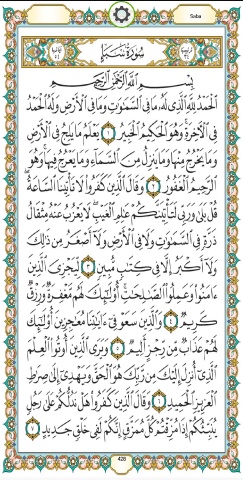 Saba
سُورَةُ سَبَإٍ
بِسْمِ اللَّهِ الرَّحْمَٰنِ الرَّحِيمِ
الْحَمْدُ لِلَّهِ الَّذِي لَهُ مَا فِي السَّمَاوَاتِ وَمَا فِي الْأَرْضِ وَلَهُ الْحَمْدُ
فِي الْآخِرَةِ وَهُوَ الْحَكِيمُ الْخَبِيرُ ١ يَعْلَمُ مَا يَلِجُ فِي الْأَرْضِ
وَمَا يَخْرُجُ مِنْهَا وَمَا يَنزِلُ مِنَ السَّمَاءِ وَمَا يَعْرُجُ فِيهَا وَهُوَ
الرَّحِيمُ الْغَفُورُ ٢ وَقَالَ الَّذِينَ كَفَرُوا لَا تَأْتِينَا السَّاعَةُ
قُلْ بَلَىٰ وَرَبِّي لَتَأْتِيَنَّكُمْ عَالِمِ الْغَيْبِ لَا يَعْزُبُ عَنْهُ مِثْقَالُ
ذَرَّةٍ فِي السَّمَاوَاتِ وَلَا فِي الْأَرْضِ وَلَا أَصْغَرُ مِن ذَٰلِكَ
وَلَا أَكْبَرُ إِلَّا فِي كِتَابٍ مُّبِينٍ ٣ لِّيَجْزِيَ الَّذِينَ
آمَنُوا وَعَمِلُوا الصَّالِحَاتِ أُولَٰئِكَ لَهُم مَّغْفِرَةٌ وَرِزْقٌ
كَرِيمٌ ٤ وَالَّذِينَ سَعَوْ فِي آيَاتِنَا مُعَاجِزِينَ أُولَٰئِكَ
لَهُمْ عَذَابٌ مِّن رِّجْزٍ أَلِيمٌ ٥ وَيَرَى الَّذِينَ أُوتُوا الْعِلْمَ
الَّذِي أُنزِلَ إِلَيْكَ مِن رَّبِّكَ هُوَ الْحَقَّ وَيَهْدِي إِلَىٰ صِرَاطِ
الْعَزِيزِ الْحَمِيدِ ٦ وَقَالَ الَّذِينَ كَفَرُوا هَلْ نَدُلُّكُمْ عَلَىٰ رَجُلٍ
يُنَبِّئُكُمْ إِذَا مُزِّقْتُمْ كُلَّ مُمَزَّقٍ إِنَّكُمْ لَفِي خَلْقٍ جَدِيدٍ ٧
428